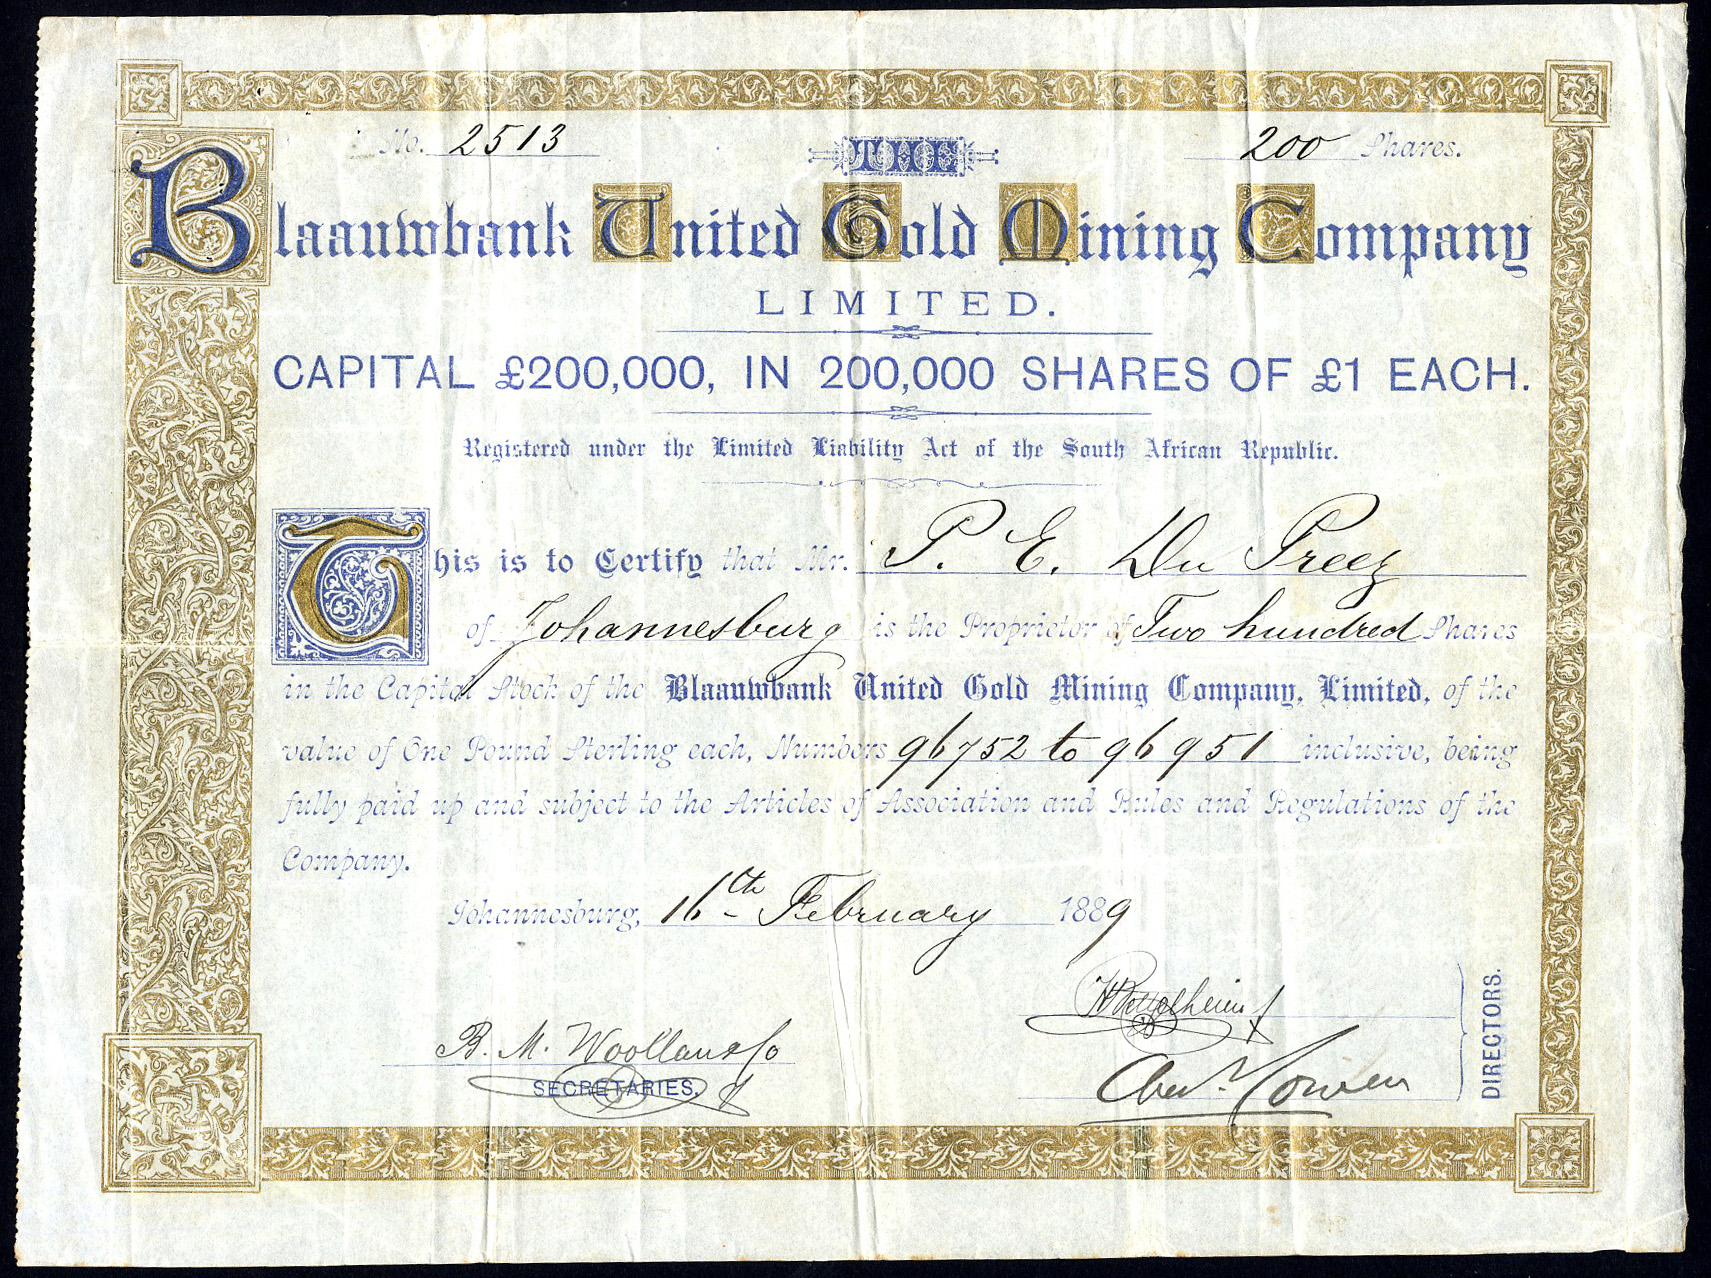 No. 2513
THE
200 Shares.
Blaauwbank United Gold Mining Company
LIMITED.
CAPITAL £200,000, IN 200,000 SHARES OF £1 EACH.
Registered under the Limited Liability Act of the South African Republic.
This is to Certify that Mr. P. E. Du Preez
of Johannesburg is the Proprietor of Two hundred Shares
in the Capital Stock of the Blaauwbank United Gold Mining Company, Limited, of the
value of One Pound Sterling each, Numbers 96752 to 96951 inclusive, being
fully paid up and subject to the Articles of Association and Rules and Regulations of the
Company.
Johannesburg, 16th February 1889
B. M. Woollan & Co
SECRETARIES.
DIRECTORS.